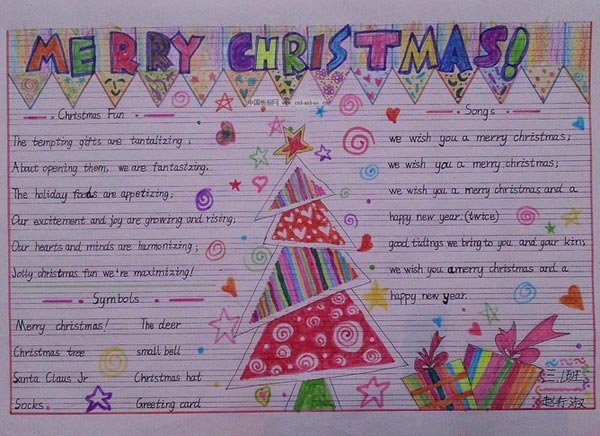 MERRY CHRISTMAS!
中国板报网 www.cnbanbao.com
Christmas Fun
The tempting gifts are tantalizing;
About opening them, we are fantasizing.
The holiday foods are appetizing;
Our excitement and joy are growing and rising;
Our hearts and minds are harmonizing;
Jolly christmas fun we're maximizing!
Symbols
Merry christmas! The deer
Christmas tree small bell
Santa Claus Jr Christmas hat
Socks Greeting card
Songs
we wish you a merry christmas;
we wish you a merry christmas;
we wish you a merry christmas and a
happy new year.(twice)
good tidings we bring to you and your kin;
we wish you a merry christmas and a
happy new year.